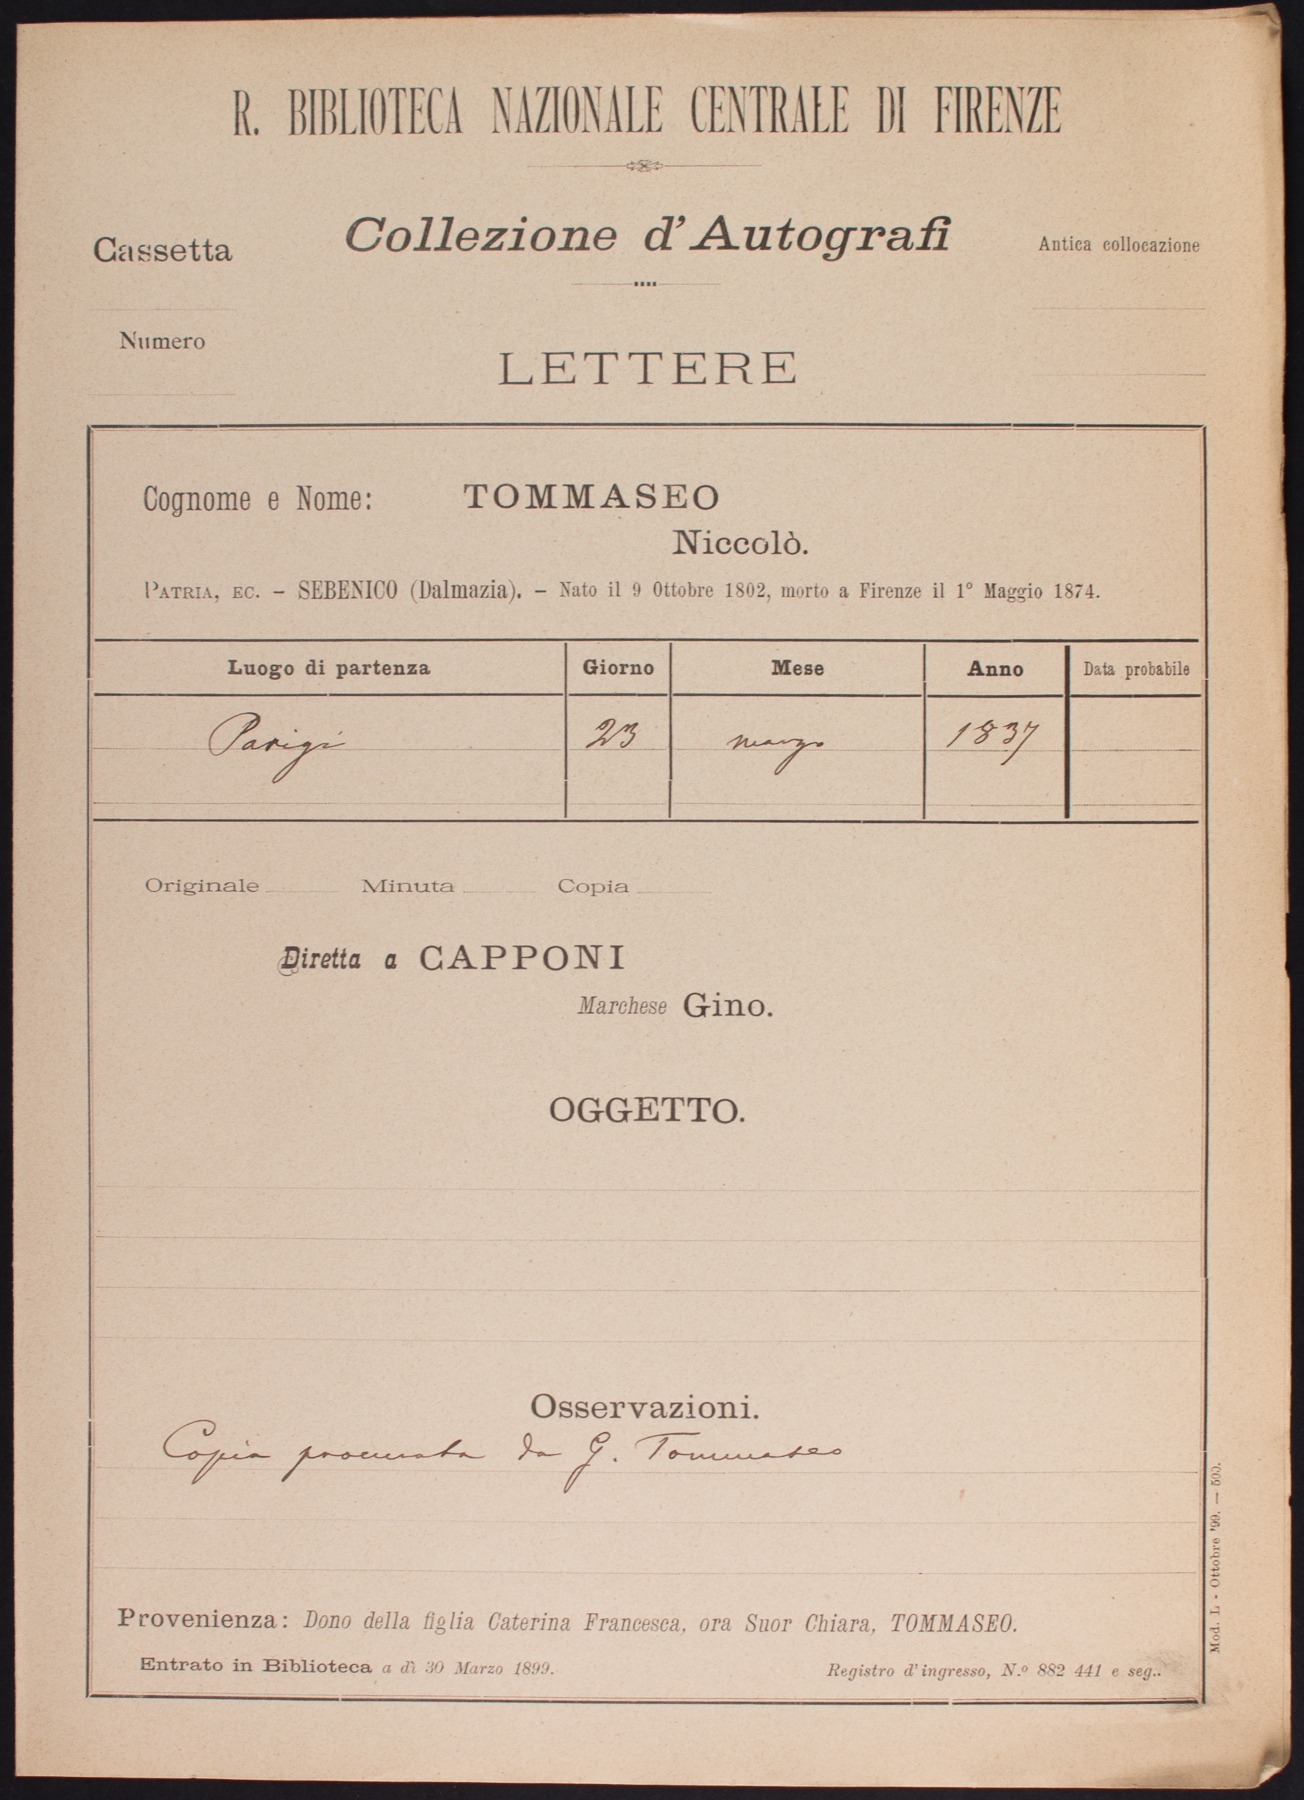 R. BIBLIOTECA NAZIONALE CENTRALE DI FIRENZE
Collezione d'Autografi
Cassetta
Antica collocazione
Numero
LETTERE
Cognome e Nome: TOMMASEO
Niccolò.
PATRIA, EC. – SEBENICO (Dalmazia). – Nato il 9 Ottobre 1802, morto a Firenze il 1° Maggio 1874.
Luogo di partenza Giorno Mese Anno Data probabile
Parigi 23 marzo 1837
Originale Minuta Copia
Diretta a CAPPONI
Marchese Gino.
OGGETTO.
Osservazioni.
Copia procurata da G. Tommaseo
Provenienza: Dono della figlia Caterina Francesca, ora Suor Chiara, TOMMASEO.
Entrato in Biblioteca a dì 30 Marzo 1899. Registro d'ingresso, N.º 882 441 e seg..
Mod. L - Ottobre '99. — 500.